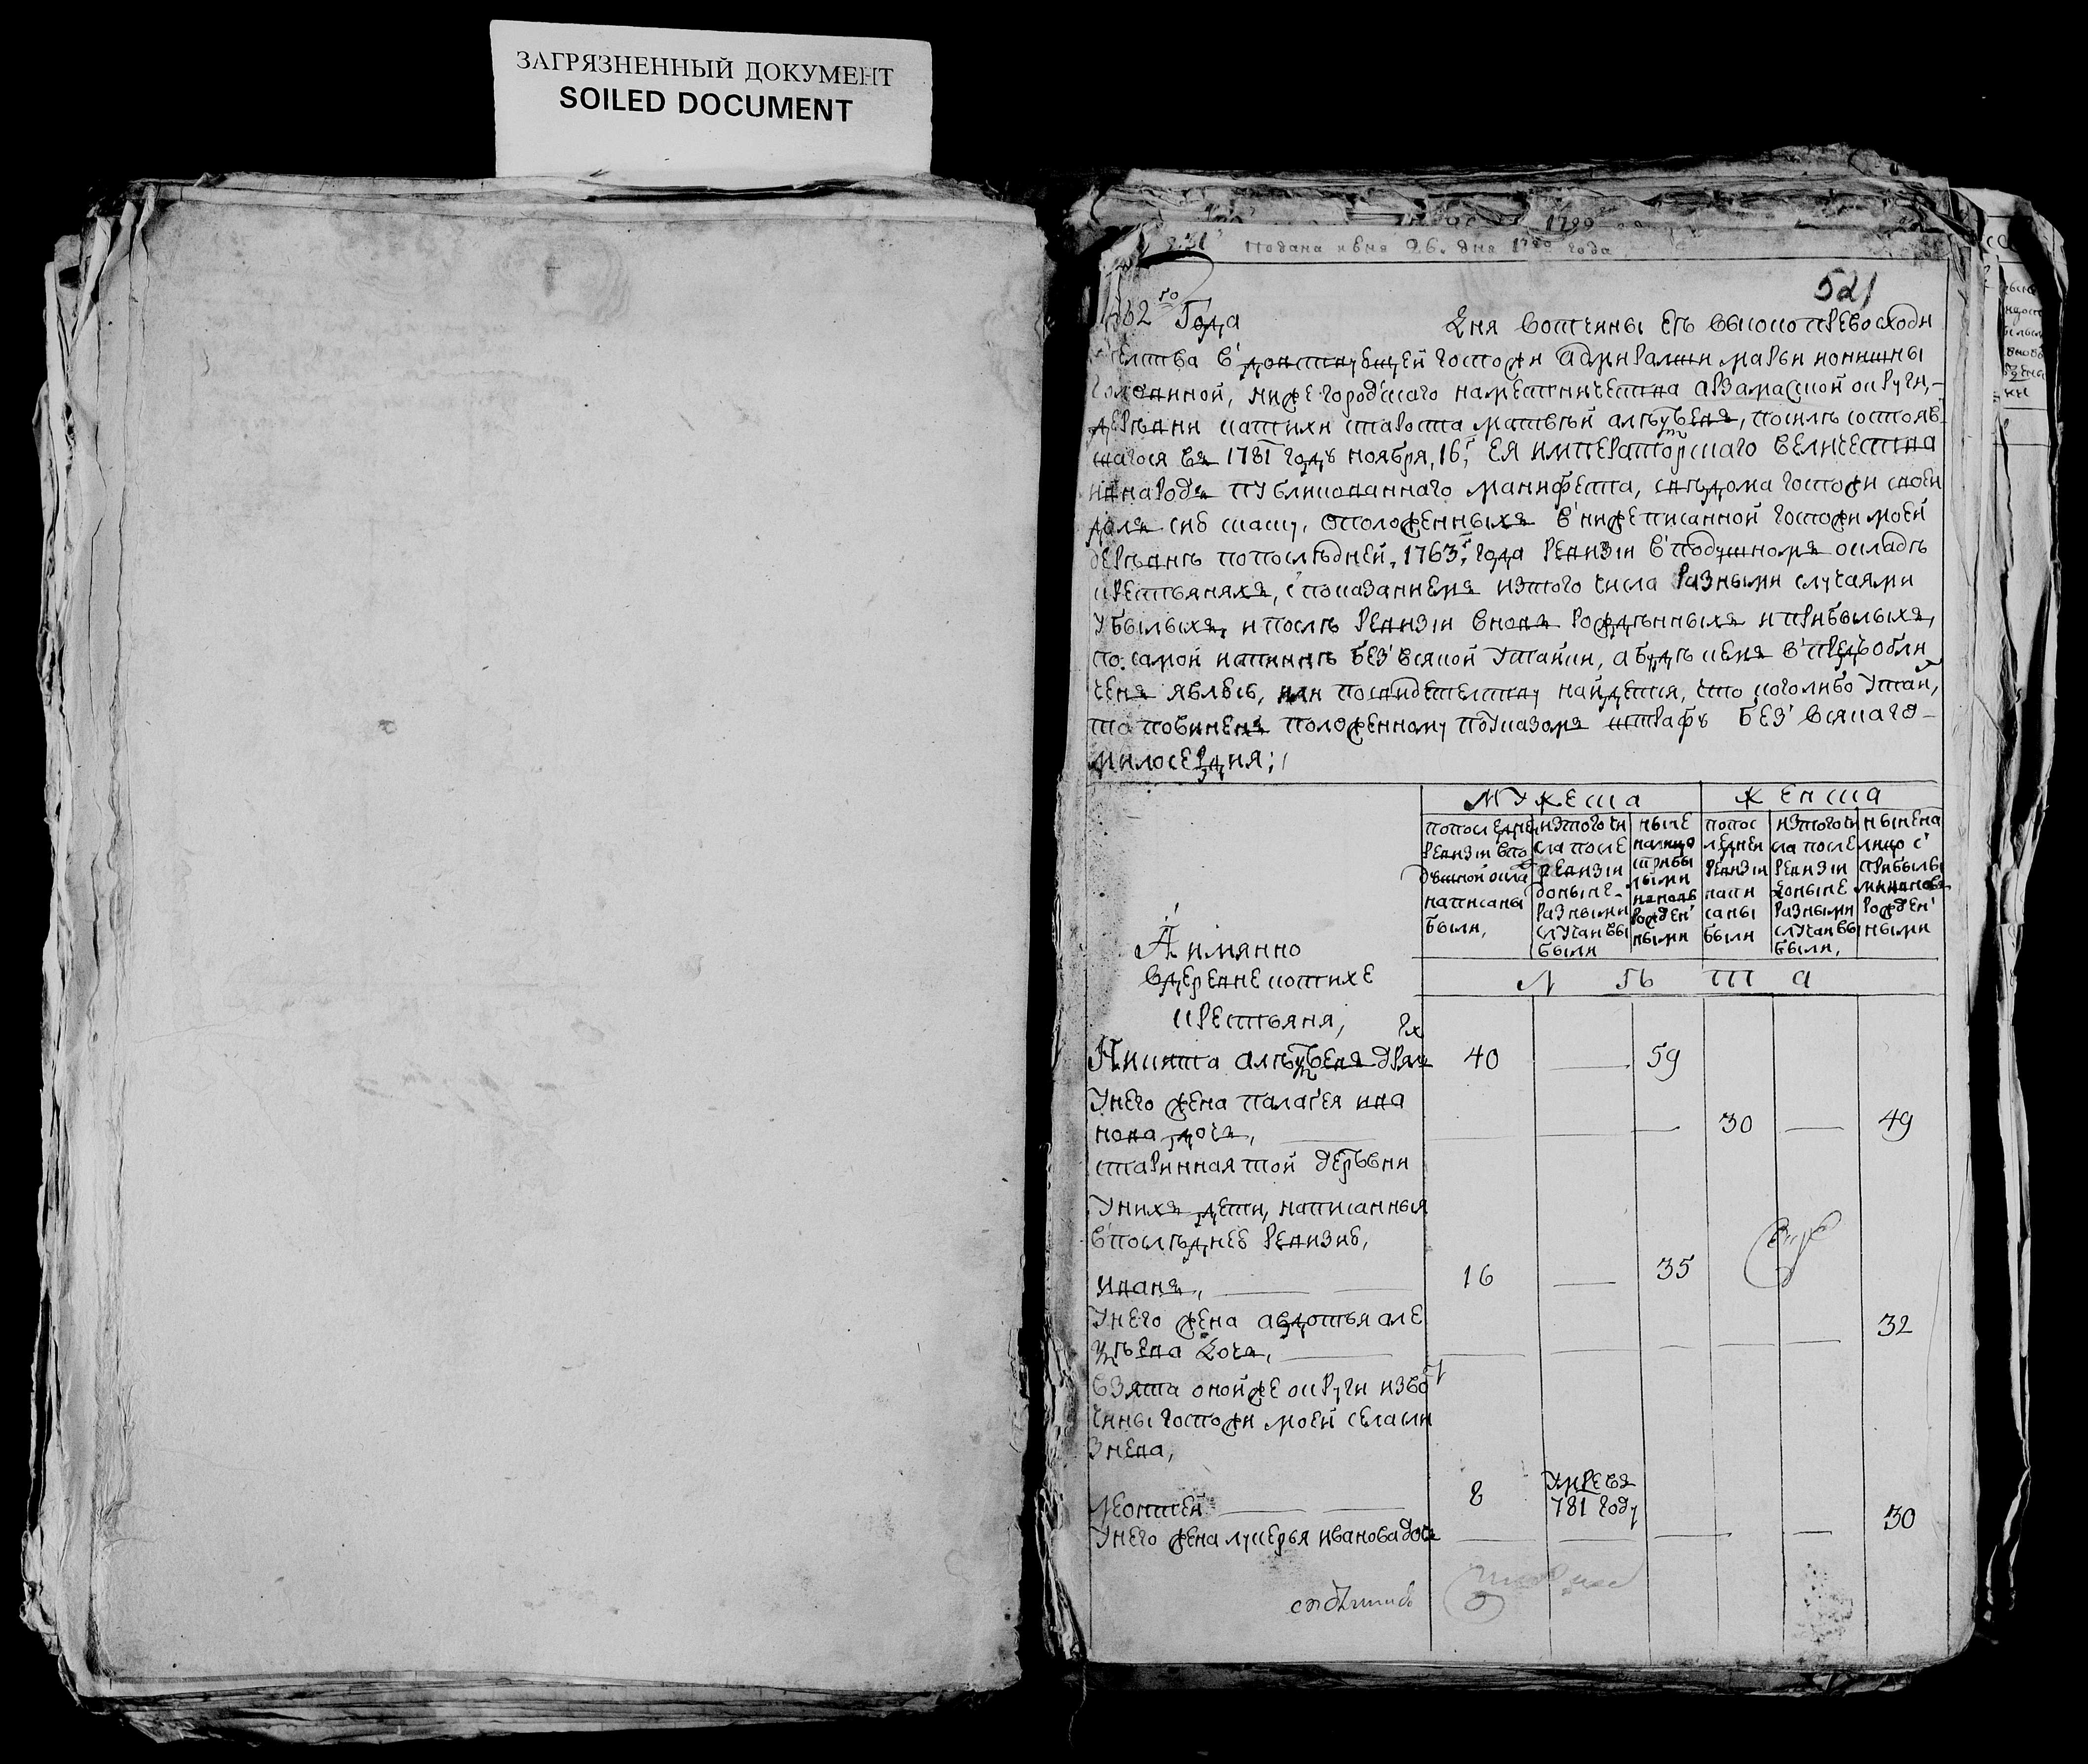 ЗАГРЯЗНЕННЫЙ ДОКУМЕНТ
SOILED DOCUMENT
1789
подана июня 26. дня 1782 года
521
1782го Года
Дня вотчины Ея высокопревосходи
тельства вдовствующей госпожи адмиралши марьи никишны
головиной, нижегородскаго наместничества арзамаской округи,
деревни староста матвей алексеевъ, посилѣ состояв
шагося въ 1781 году ноября, 16, ЕЯ ИМПЕРАТОРскаго величества
инародъ публикованнаго манифеста, сведома госпожи своей
далъ сию скаску, оположенныхъ в нижеписанной госпожи моей
деревнѣ попоследней, 1763, года ревизiи в подушномъ окладѣ
крестьянахъ, споказаниемъ изтого числа разными случаями
убылыхъ, ипослѣ ревизiи вновь рожденныхъ иприбылыхъ,
по самой истиннѣ без всякой утайки, а будѣ чемъ
явлюсь, или посвидетелству найдется, что коголибо утаи,
то повиненъ положенному поуказомъ штрафу без всякаго
милосердия;
МУЖЕСКА
ЖЕНСКА
попоследней
ревизiи впо
душной окла
написаны
были,
изтогочи
сла после
ревизiи
доныне
разными
случаи вы
были
ныне
налицо
сприбы
лыми
ивновь
рожден
ными
попос
ледней
ревизiи
напи
саны
были
изтогочи
сла после
ревизiи
доныне
разными
случаи вы
были,
ныне на
лицо с
прибылы
ми ивновь
рожден
ными
А имянно
вдеревне котихе
ЛѢТА
крестьяня,
Никита алексеевъ
40 59
Унего жена палагея ива
нова дочь,
30 49
старинная той деревни
Унихъ дети, написанныя
впоследнею ревизию,
иванъ,
16 35
Унего жена авдотья але
ксѣева дочь,
32
взята оной же округи изво
чины госпожи моей села
знева,
леонтей
8
умре въ
781 году
Унего жена лукерья иванова дочь
30